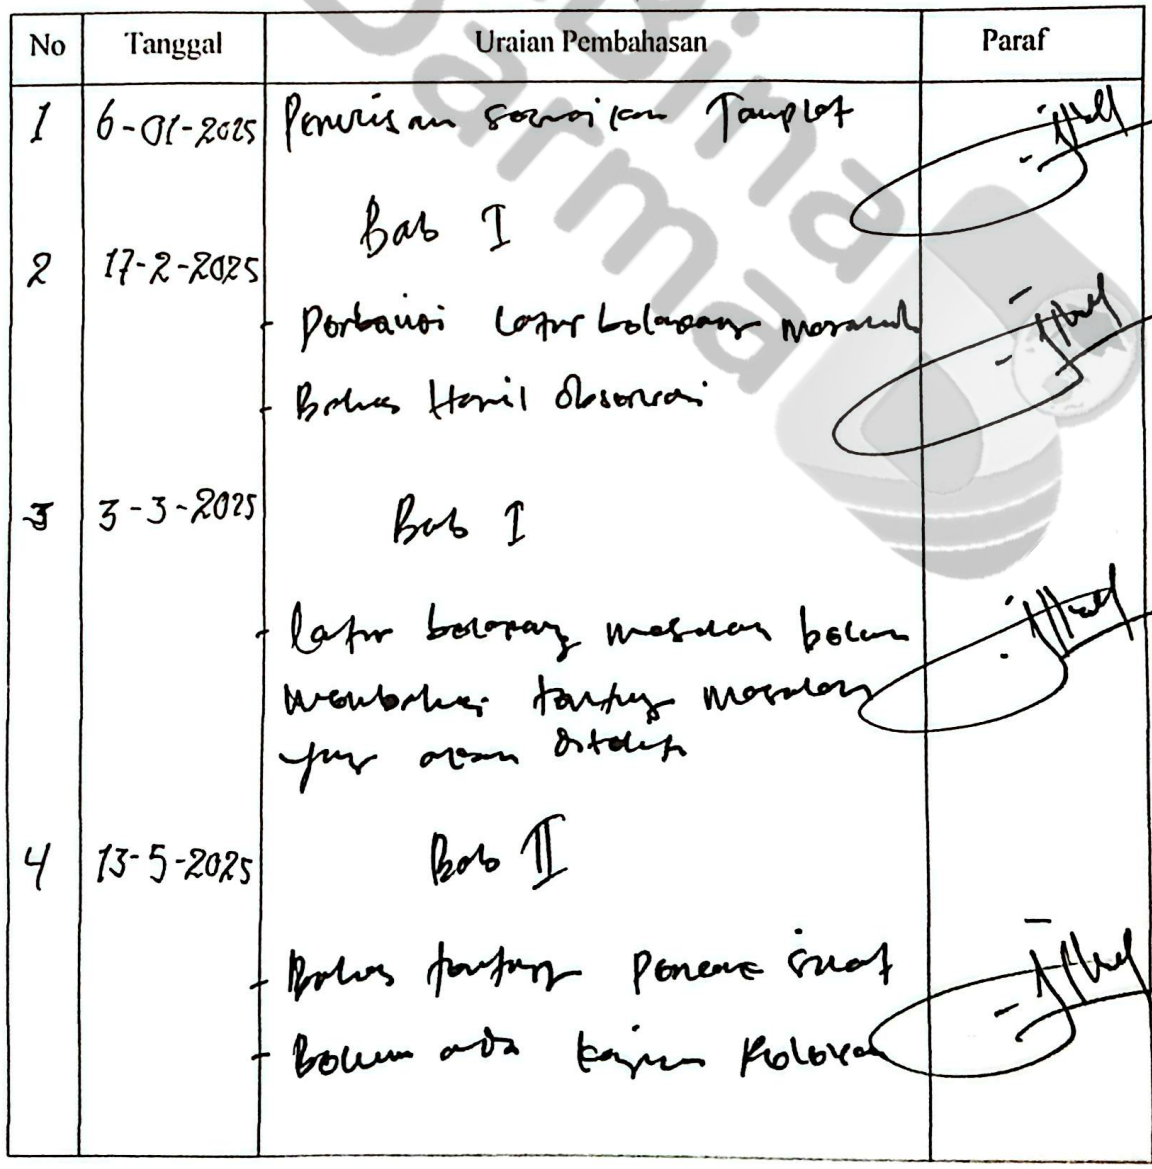 Bina
Darma
No Tanggal Uraian Pembahasan Paraf
1 6-01-2025 Penulisan sesuaikan Templet
Bab I
2 17-2-2025
- Perbaiki latar belakang masalah
- Bahas Hasil Observasi
3 3-3-2025 Bab I
- latar belakang masalah belum
membahas tentang masalah
yang akan diteliti
4 13-5-2025 Bab II
- Bahas tentang
- Belum ada kajian Relevan